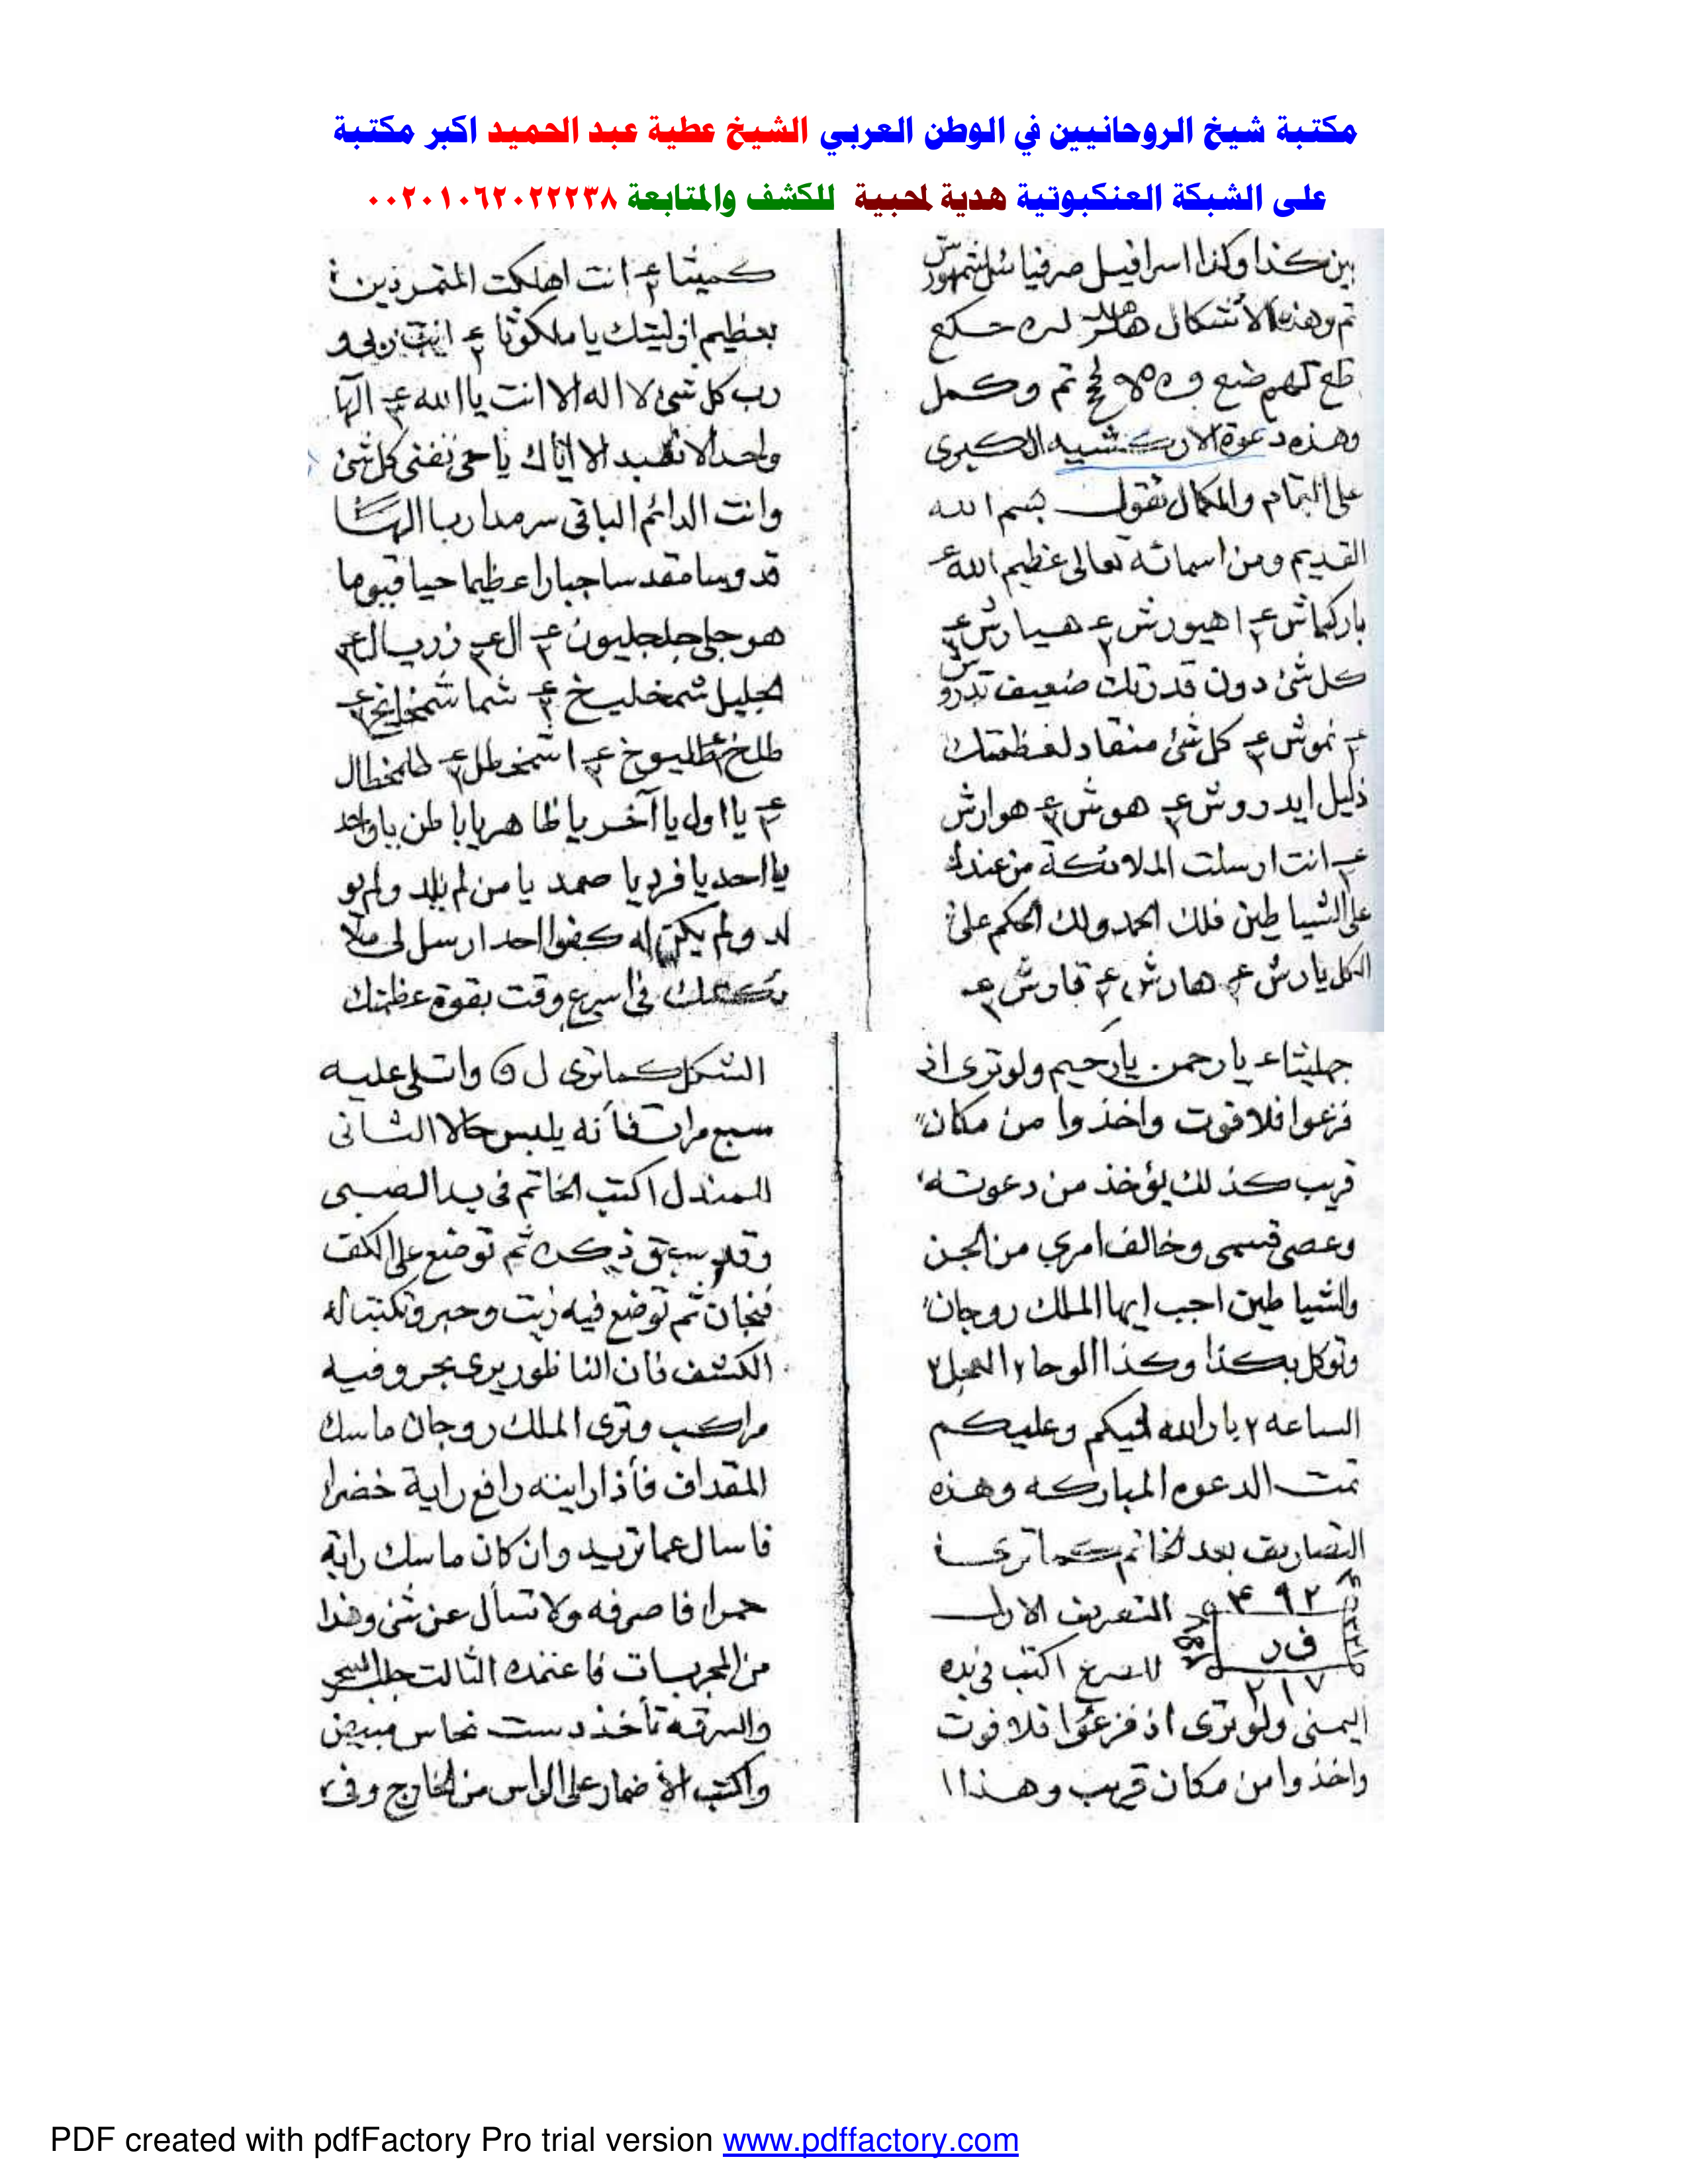 مكتبة شيخ الروحانيين في الوطن العربي الشيخ عطية عبد الحميد اكبر مكتبة
على الشبكة العنكبوتية هدية لمحبية للكشف والمتابعة ٠٠٢٠١٠٦٢٠٢٢٢٣٨
بين كذا وكذا اسرافيل صرفيائيل شمهورش
تم وهذه الاشكال
تم وكمل
وهذه دعوة الاركشيه الكبرى
على التمام والكمال تقول بسم الله
القديم ومن اسمائه تعالى عظيم الله
باركياش ٣ اهيورش ٢ هيارش ٣
كل شئ دون قدرتك ضعيف تدروش
٢ نموش ٣ كل شئ منقاد لعظمتك
ذليل ايدروش ٢ هوش ٣ هوارش
انت ارسلت الملائكة من عندك
على الشياطين فلك الحمد ولك الحكم على
الكل يارش هارش ٢ قاوش ٣
كميثا ٢ انت اهلكت المتمردين
بعظيم ازليتك يا ملكوثا ٢ انت ربي و
رب كل شئ لا اله الا انت يا الله ٣ الها
واحدا لا نعبد الا اياك يا حي تفنى كل شئ
وانت الدائم الباقى سرمدا ربا الهنا
قدوسا مقدسا جبارا عظيما حيا قيوما
هو جلى جلجليون ٢ ال ٣ زريال ٣
الجليل شمخليخ ٢ شما شمخ
طلخ طليوخ ٢ اشمخطل ٣ طمخطال
٣ يا اول يا آخر يا ظاهر يا باطن يا واحد
يا احد يا فرد يا صمد يا من لم يلد ولم يو
لد ولم يكن له كفوا احد ارسل لى ملا
ئكتك فى اسرع وقت بقوة عظمتك
جهليثا يا رحمن يا رحيم ولو ترى اذ
فزعوا فلا فوت واخذوا من مكان
قريب كذلك يؤخذ من دعوته
وعصى قسمى وخالف امرى من الجن
والشياطين اجب ايها الملك روجان
وتوكل بكذا وكذا الوحا ٢ العجل ٢
الساعه ٢ بارك الله فيكم وعليكم
تمت الدعوه المباركه وهذه
التصاريف بعد الخاتم كما ترى
٤ ٩ ٢ التصريف الاول
ف ر للصرع اكتب فى يده
٢ ١ ٧
اليمنى ولو ترى اذ فزعوا فلا فوت
واخذوا من مكان قريب وهذا ا
الشكل كما ترى ل ٥ واتلى عليه
سبع مرات فأنه يلبس حالا الثانى
للمندل اكتب الخاتم فى يد الصبى
وقد سبق ذكره ثم توضع على الكف
فنجان ثم توضع فيه زيت وحبر وتكتب له
الكشف فان الناظور يرى بحر وفيه
مراكب وترى الملك روجان ماسك
المقداف فأذا رايته رافع راية خضرا
فاسال عما تريد وان كان ماسك راية
حمرا فاصرفه ولا تسأل عن شئ وهذا
من المجربات فاعتمده الثالث جلب السحر
والسرقه تأخذ دست نحاس مبيض
واكتب الاضمار على الراس من الخارج وفى
PDF created with pdfFactory Pro trial version www.pdffactory.com